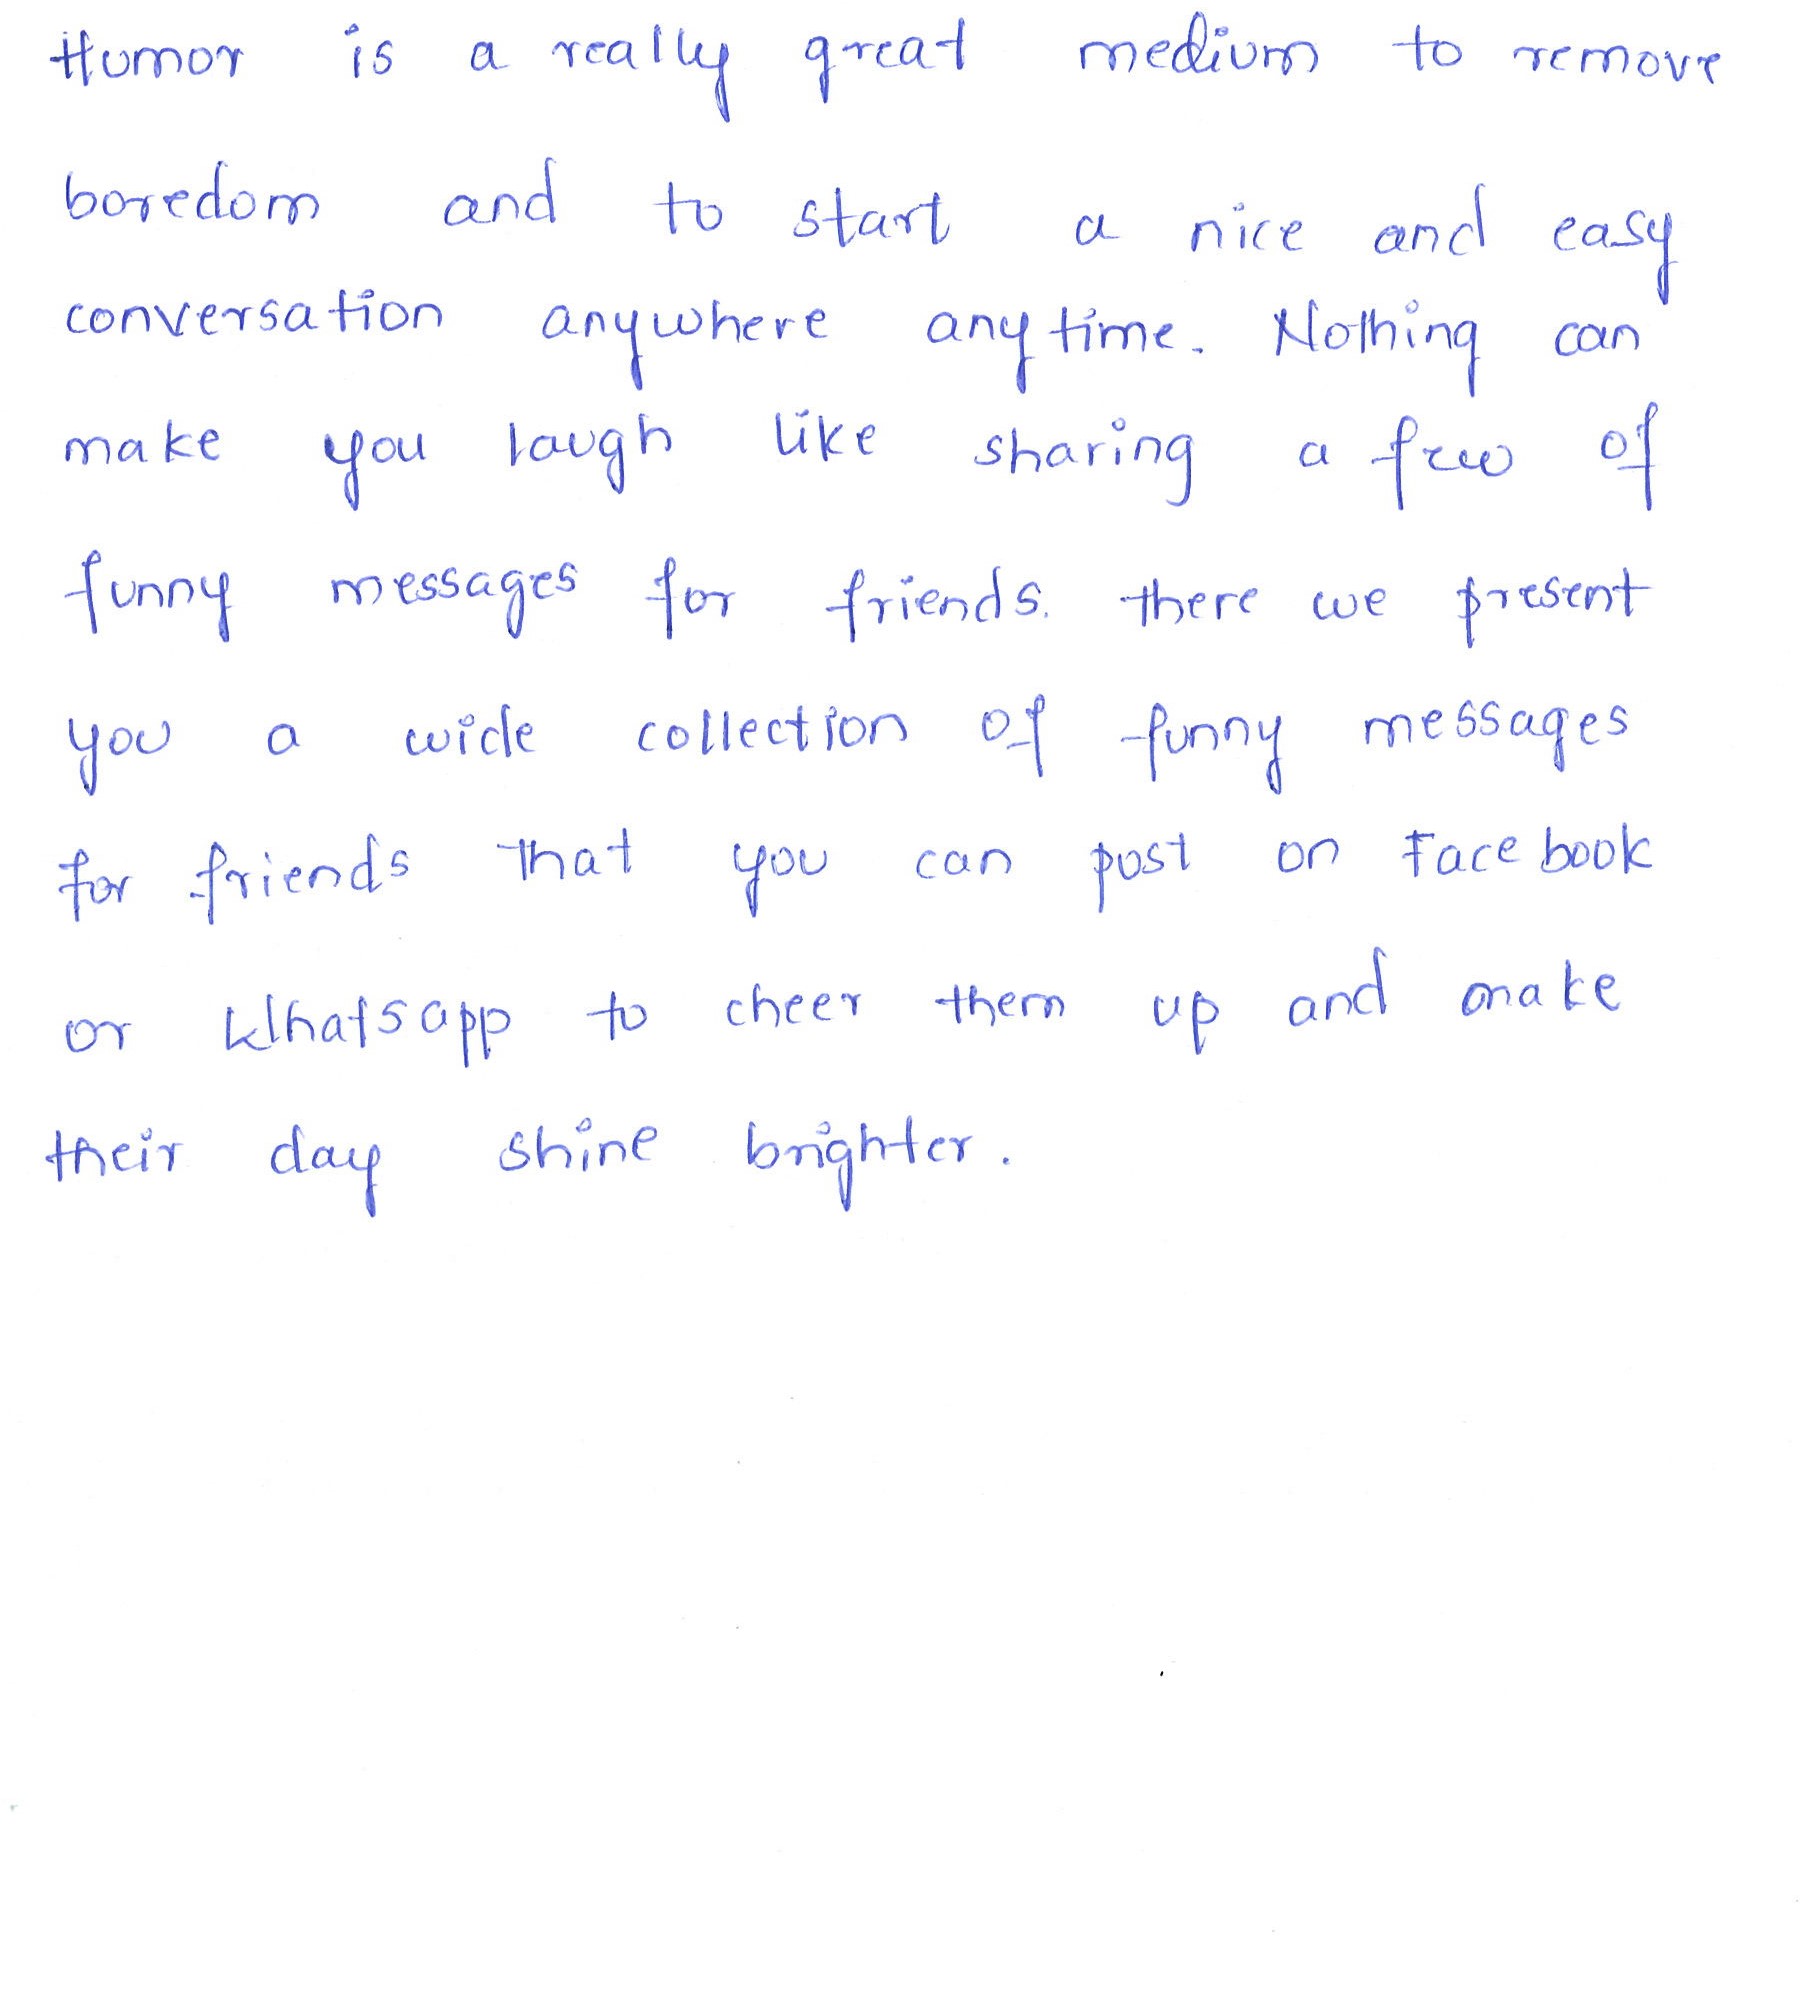 Humor is a really great medium to remove
boredom and to start a nice and easy
conversation anywhere anytime. Nothing can
make you laugh like sharing a few of
funny messages for friends. there we present
you a wide collection of funny messages
for friends that you can post on Facebook
or Whatsapp to cheer them up and make
their day shine brighter.